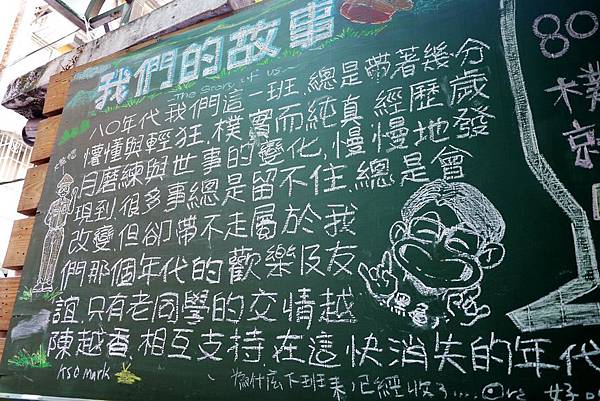 我們的故事
The Story of us
八○年代 我們這一班，總是帶著幾分
懵懂與輕狂，樸實而純真，經歷歲
月磨練與世事的變化，慢慢地發
現到，很多事總是留不住，總是會
改變，但卻帶不走屬於我
們那個年代的歡樂及友
誼，只有老同學的交情越
陳越香，相互支持在這快消失的年代
KSO mark
80
好
樸
京